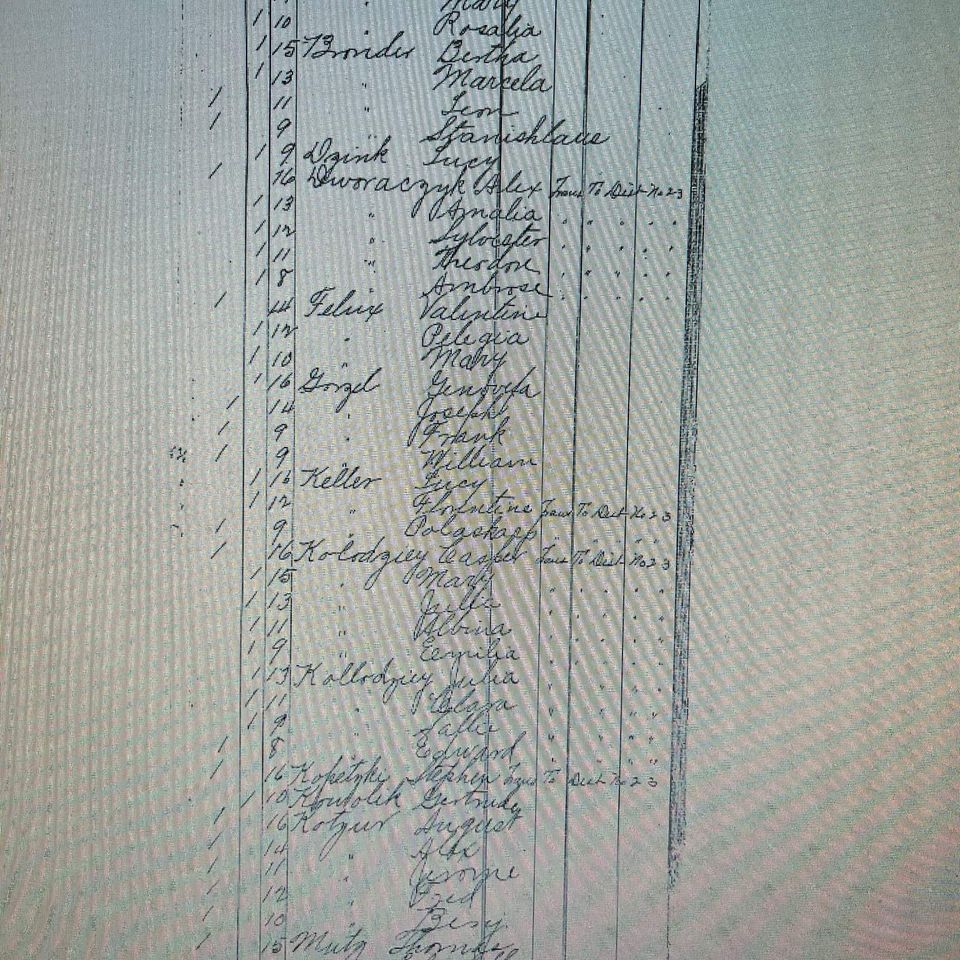 " Mary
1 10 Rosalia
1 15 Bronder Bertha
1 13 " Marcela
1 11 " Leon
1 9 Stanishlaus
1 9 Dzink Lucy
1 16 Dworaczyk Alex Trans To Dist No 23
1 13 " Amalia " " " " "
1 12 " Sylvester " " " " "
1 11 " Theodore " " " " "
1 8 Ambrose " " " " "
1 14 Felux Valentine
1 12 " Pelegia
1 10 " Mary
1 16 Gorzel Genovefa
1 14 " Joseph
1 9 " Frank
1 9 " William
1 16 Keller Lucy
1 12 " Florentine Trans To Dist No 23
1 9 " " " " " "
1 16 Kolodziey Casper Trans To Dist No 23
1 15 " Mary " " " " "
1 13 " Julia " " " " "
1 11 " Albina " " " " "
1 9 " Eemilia " " " " "
1 13 Kollodziey Julia " " " " "
1 11 " Clara " " " " "
1 9 " Sallie " " " " "
1 8 Edward " " " " "
1 16 Kopetzki Stephen Trans To Dist No 23
1 10 Gertrude
1 16 Kotzur August
1 14 " Alex
1 11 " Jerome
1 12 " Fred
1 10 " Benj
1 15 Mutz Thomas